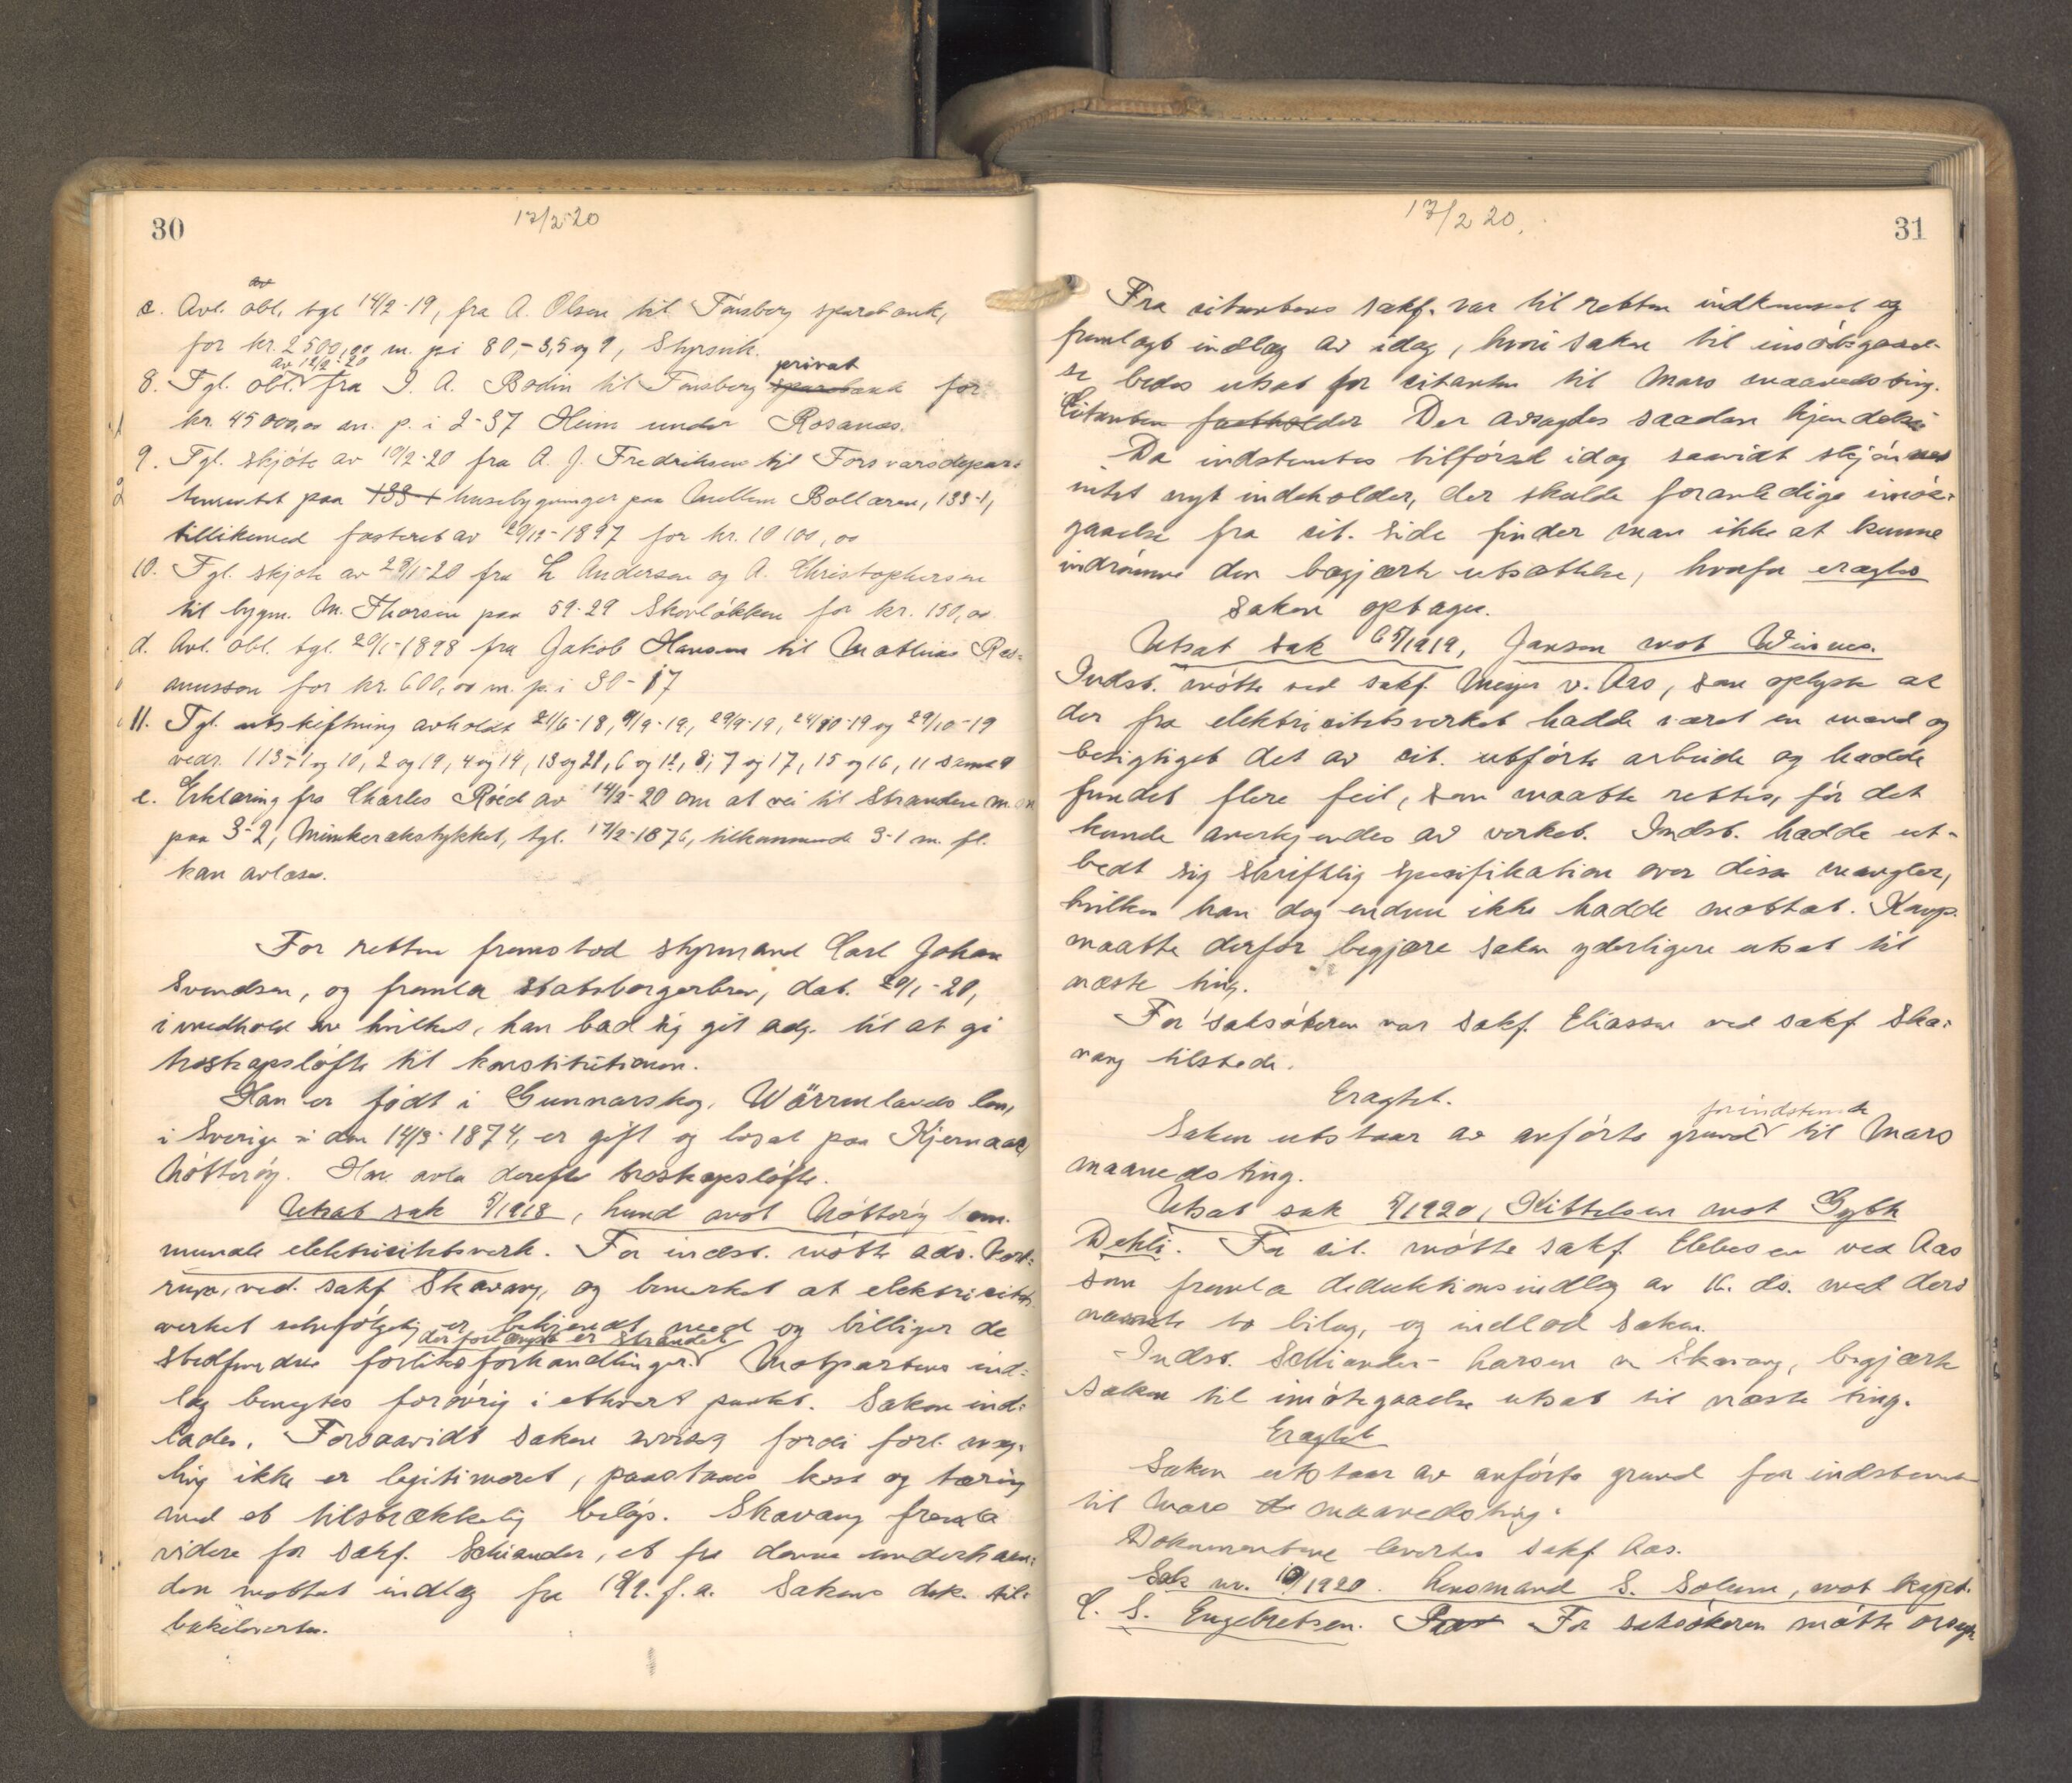 30
17/2-20
c. Avl. obl. tgl 14/2-19, fra A. Olsen til Tønsberg sparebank,
for kr. 2500,00 m. p i 80,-3,5 og 9, Styrsvik.
av 12/2-20 privat
8. Tgl. obl. fra I. A. Bodin til Tønsberg sparebank for
kr. 45000,00 m. p. i 2-37 Heim under Rosanes.
9. Tgl. skjøte av 10/2-20 fra A. J. Fredriksen til Forsvarsdepar-
tementet paa 133-1 husebygninger paa Mellem Bollæren, 133-1,
tillikemed festeret av 29/12-1897 for kr. 10100,00
10. Tgl. skjøte av 28/1-20 fra L Andersen og A. Christophersen
til bygm. M. Thorsen paa 59-29 Skovløkken for kr. 150,00
d. Avl. obl. tgl. 29/1-1898 fra Jakob Hansen til Mathias Ras-
mussen for kr. 600,00 m. p. i 30-17
11. Tgl. utskiftning avholdt 21/6-18, 9/9-19, 29/9-19, 24/10-19 og 29/10-19
vedr. 113-1 og 10, 2 og 19, 4 og 14, 13 og 21, 6 og 12, 8, 7 og 17, 15 og 16, 11 samt 9
e. Erklæring fra Charles Røed av 14/2-20 om at vei til Stranden m.
paa 3-2, Minkerekstykket, tgl. 17/2-1876, tilkommende 3-1 m. fl.
kan avlæses.
For retten fremstod styrmand Carl Johan
Svendsen, og fremla statsborgerbrev, dat. 29/1-20,
i medhold av hvilket, han bad sig git adg. til at gi
troskapsløfte til konstitutionen.
Han er født i Gunnarskog, Wärmlands len,
i Sverige den 14/3-1874, er gift og bosat paa Kjernaas,
Nøtterøy. Han avla derefter troskapsløfte.
Utsat sak 5/1918, Lund mot Nøtterøy kom-
munale elektricitetsverk. For indst. møtte adv.
ved sakf Skavang, og bemerket at elektricitets-
verket selvfølgelig er bekjendt med og billiger de
der forlængst er strandet
stedfundne forliksforhandlinger. Motpartens ind-
læg benegtes forøvrig i ethvert punkt. Saken ind-
lades. Forsaavidt saken avvises fordi forl. mæg-
ling ikke er legitimeret, paastaaes kost og tæring
med et tilstrækkelig beløp. Skavang fremla
videre for sakf. Schiander, et fra denne underhaan-
den mottat indlæg fra f.a. Sakens dok. til-
bakeleverter.
31
17/2 20.
Fra citantens sakf. var til retten indkommet og
fremlagt indlæg av idag, hvori saken til imøtegaael-
se bedes utsat for citanten til Mars maanedsting.
Citanten fastholder Der avsagdes saadan kjendelse
Da indstemtes tilførsel idag saavidt skjønnes
intet nyt indeholder, der skulde foranledige imøte-
gaaelse fra cit. side finder man ikke at kunne
indrømme den begjærte utsættelse, hvorfor eragtes
Saken optages.
Utsat sak 65/1919, Jansen mot Winnes.
Indst. møtte ved sakf. Meyer v. Aas, som oplyste at
der fra elektricitetsverket hadde været en mand og
besigtiget det av cit. utførte arbeide og hadde
fundet flere feil, som maatte rettes, før det
kunde anerkjendes av verket. Indst. hadde ut-
bedt sig skriftlig spesifikation over disse mangler,
hvilken han dog endnu ikke hadde mottat. Komp.
maatte derfor begjære saken yderligere utsat til
næste ting.
For saksøkeren var sakf. Eliassen ved sakf Ska-
vang tilstede.
Eragtet.
for indstemte
Saken utstaar av anførte grund til Mars
maanedsting.
Utsat sak 5/1920, Kittelsen mot Gythe
Dehli. For cit. møtte sakf Ebbesen ved Aas
som fremla deduktionsindlæg av 16. ds. med deri
nævnte to bilag, og indlod saken.
Indst. Schiander-Larsen v Skavang, begjærte
saken til imøtegaaelse utsat til næste ting.
Eragtet
Saken utstaar av anførte grund for indstemte
til Mars de maanedsting.
Dokumentene levertes sakf Aas.
Sak nr. 10/1920. Lensmand S. Solum, mot kapt.
C. S. Engebretsen. For saksøkeren møtte